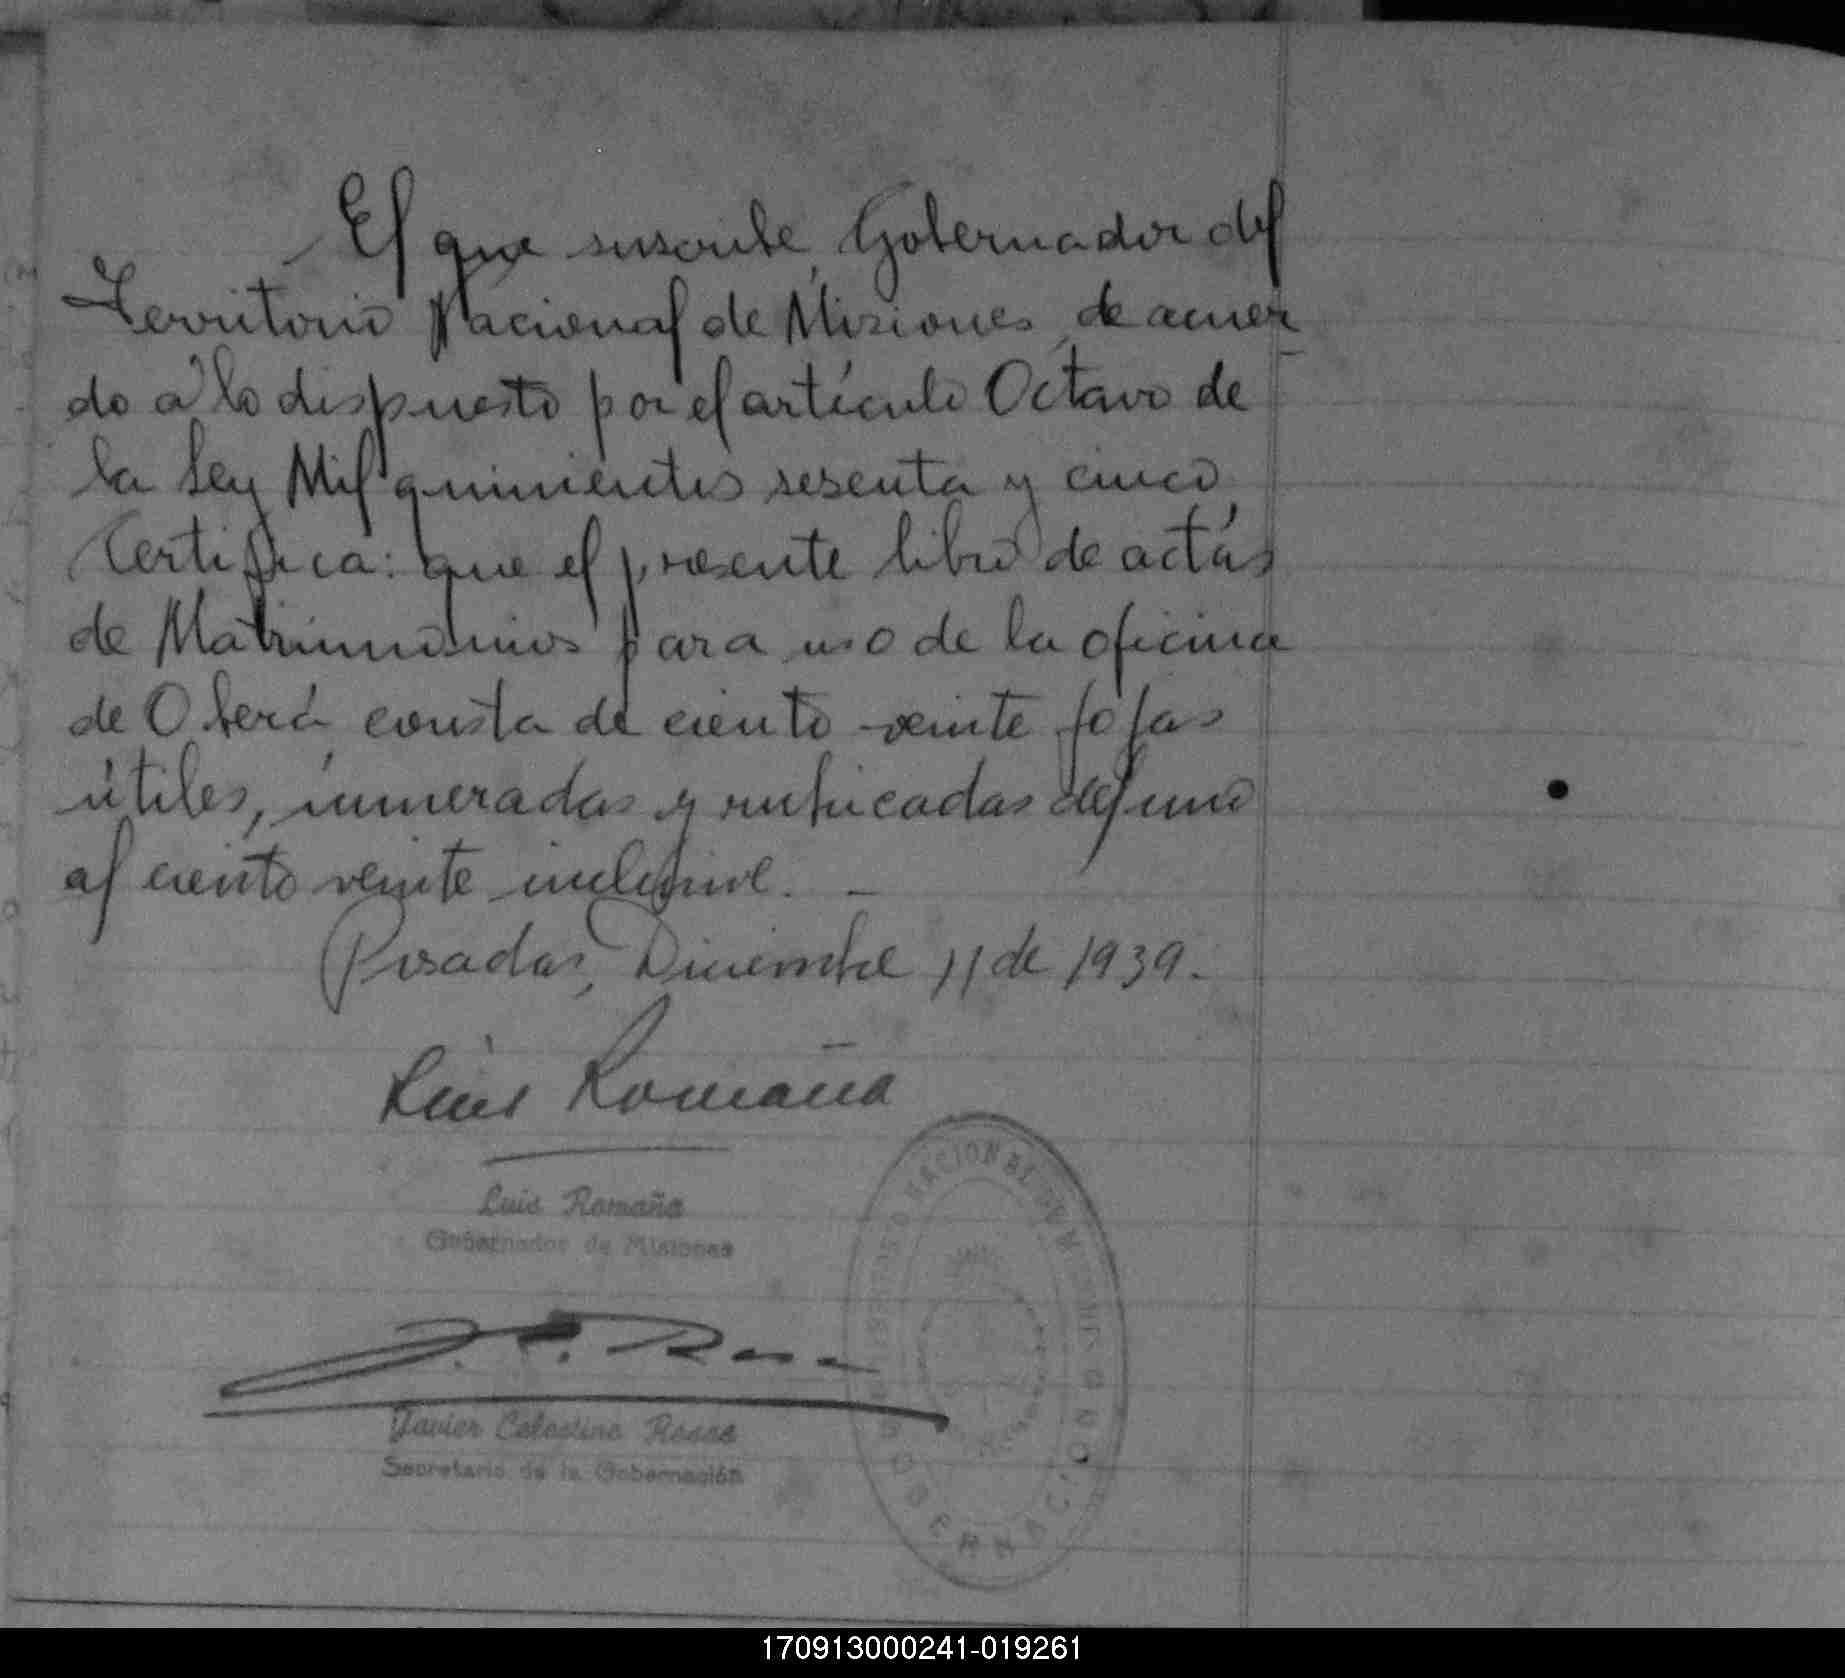 El que suscribe, Gobernador del
Territorio Nacional de Misiones, de acuer
do a lo dispuesto por el artículo Octavo de
la Ley Mil quinientos sesenta y cinco,
Certifica: que el presente libro de actas
de Matrimonios para uso de la oficina
de Oberá consta de ciento veinte fojas
útiles, numeradas y rubricadas del uno
al ciento veinte inclusive. —
Posadas, Diciembre 11 de 1939.-
Luis Romaña
Luis Romaña
Gobernador de Misiones
J. C. Rosas
Javier Celestino Rosas
Secretario de la Gobernación
NACIONAL DE MISIONES
GOBERNACION
170913000241-019261